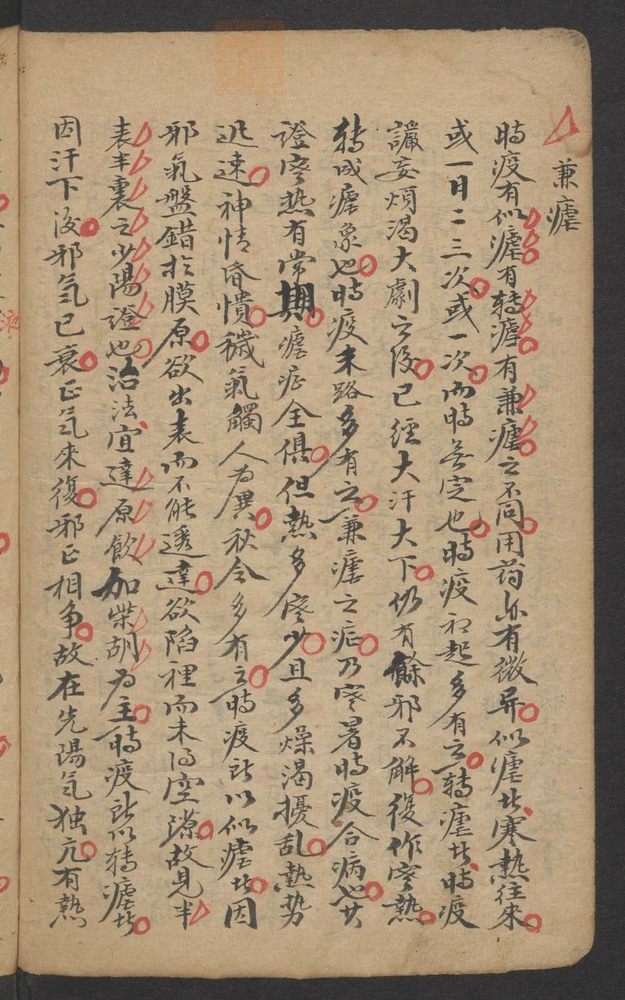 兼瘧
時疫有似瘧有轉瘧有兼瘧之不同用药亦有微异似瘧者寒熱往来
或一日二三次或一次而時無定也時疫初起多有之轉瘧者時疫
讝妄煩渴大劇之後已經大汗大下仍有餘邪不解復作寒熱
转成瘧象也時疫末路多有之兼瘧之症乃寒暑時疫合病也其
證寒熱有常期瘧症全俱但熱多寒少且多燥渴擾乱熱势
迅速神情昏憒穢氣觸人為異秋令多有之時疫所以似瘧者因
邪氣盤錯於膜原欲出表而不能透達欲陷裡而未得空隙故見半
表半裏之少陽證也治法宜達原飲加柴胡為主時疫所以转瘧者
因汗下後邪气已衰正气来復邪正相争故在先陽气独亢有熱